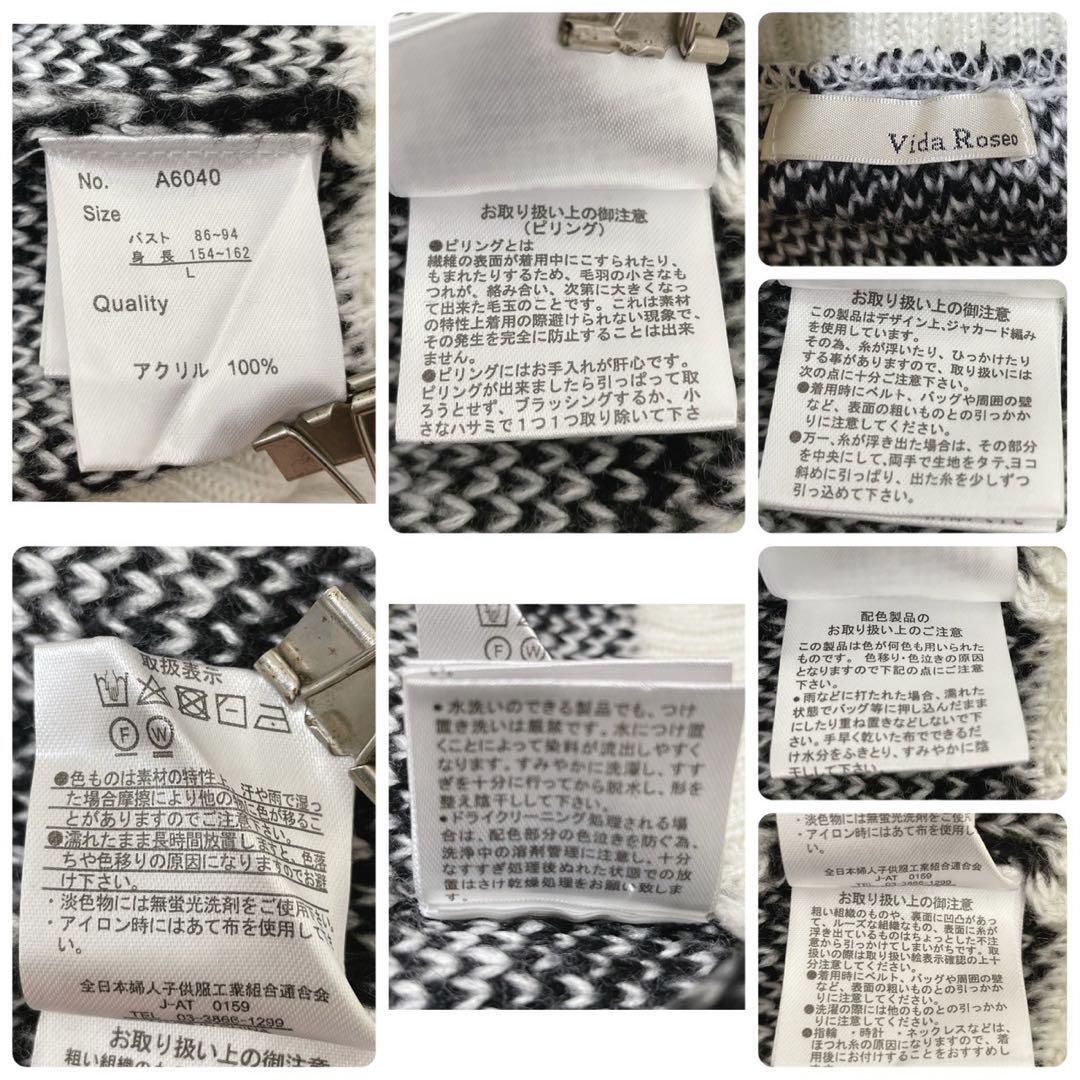 No. A6040
Size
バスト 86~94
身長 154~162
L
Quality
アクリル 100%
お取り扱い上の御注意
(ピリング)
●ピリングとは
繊維の表面が着用中にこすられたり、
もまれたりするため、毛羽の小さなも
つれが、絡み合い、次第に大きくなっ
て出来た毛玉のことです。これは素材
の特性上着用の際避けられない現象で、
その発生を完全に防止することは出来
ません。
●ピリングにはお手入れが肝心です。
ピリングが出来ましたら引っぱって取
ろうとせず、ブラッシングするか、小
さなハサミで1つ1つ取り除いて下さ
Vida Roseo
お取り扱い上の御注意
この製品はデザイン上、ジャカード編み
を使用しています。
その為、糸が浮いたり、ひっかけたり
する事がありますので、取り扱いには
次の点に十分ご注意下さい。
●着用時にベルト、バッグや周囲の壁
など、表面の粗いものとの引っかか
りに注意してください。
●万一、糸が浮き出た場合は、その部分
を中央にして、両手で生地をタテ、ヨコ
斜めに引っぱり、出た糸を少しずつ
引っ込めて下さい。
取扱表示
F W
●色ものは素材の特性上、汗や雨で湿っ
た場合摩擦により他の物に色が移るこ
とがありますのでご注意下さい。
●濡れたまま長時間放置しますと、色落
ちや色移りの原因になりますのでお避
け下さい。
・淡色物には無蛍光洗剤をご使用下さい。
・アイロン時にはあて布を使用して
い。
全日本婦人子供服工業組合連合会
J-AT 0159
TEL 03-3866-1299
お取り扱い上の御注意
粗い組織のもの
F W
●水洗いのできる製品でも、つけ
置き洗いは厳禁です。水につけ置
くことによって染料が流出しやすく
なります。すみやかに洗濯し、すす
ぎを十分に行ってから脱水し、形を
整え陰干しして下さい。
●ドライクリーニング処理される場
合は、配色部分の色泣きを防ぐ為、
洗浄中の溶剤管理に注意し、十分
なすすぎ処理後ぬれた状態での放
置はさけ乾燥処理をお願い致しま
す。
配色製品の
お取り扱い上のご注意
この製品は色が何色も用いられた
ものです。色移り・色泣きの原因
となりますので下記の点にご注意
下さい。
●雨などに打たれた場合、濡れた
状態でバッグ等に押し込んだまま
にしたり重ね置きなどしないで下
さい。手早く乾いた布でできるだ
け水分をふきとり、すみやかに陰
干しして下さい。
・淡色物には無蛍光洗剤をご使
・アイロン時にはあて布を使用し
い。
全日本婦人子供服工業組合連合会
J-AT 0159
TEL 03-3866-1299
お取り扱い上の御注意
粗い組織のものや、裏面に凹凸があっ
て、ルーズな組織なもの、表面に糸が
浮き出ているものはちょっとした不注
意から引っかけてしまいがちです。取
扱いの際は取り扱い絵表示確認の上十
分注意してください。
●着用時にベルト、バッグや周囲の壁
など、表面の粗いものとの引っかか
りに注意してください。
●洗濯の際には他のものとの引っかか
りに注意してください。
●指輪・時計・ネックレスなどは、
ほつれ糸の原因になりますので、着
用後にお付けすることをおすすめし